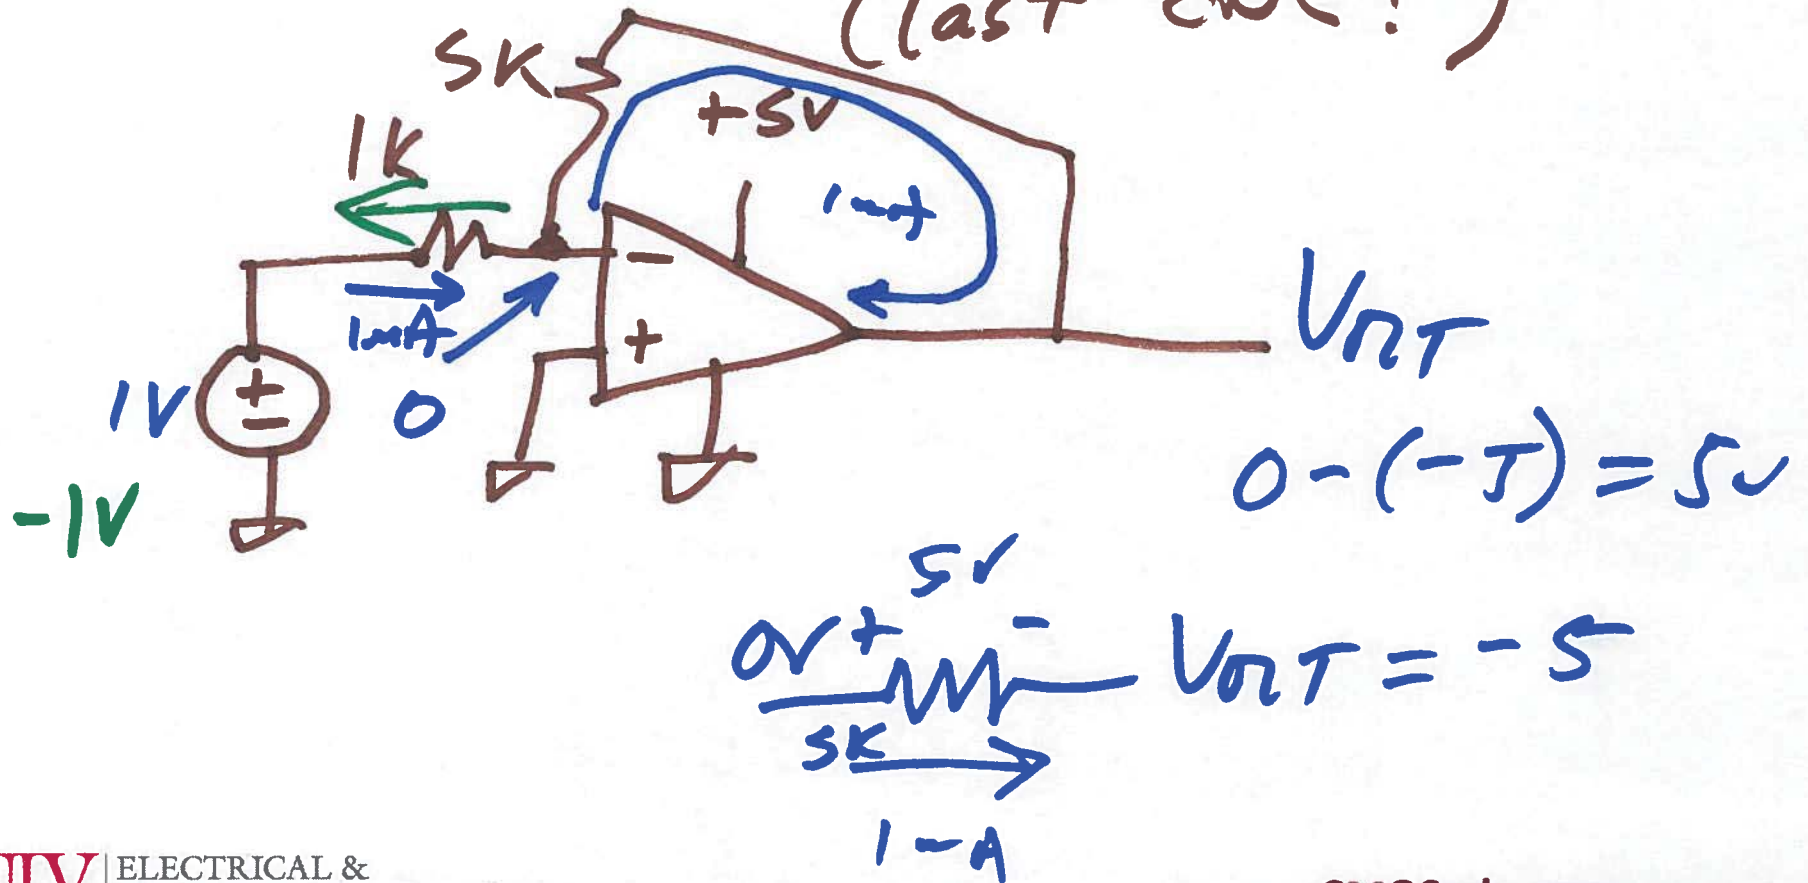 (last one!)
5K
+5V
1K
1mA
1mA
-
+
VOUT
1V
+
-
0
-1V
0-(-5)=5V
5V
0V + -
VOUT = -5
5K
1mA
ELECTRICAL &